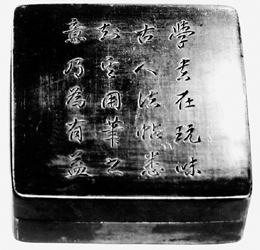 學書在玩味
古人法帖悉
知其用筆之
意乃為有益